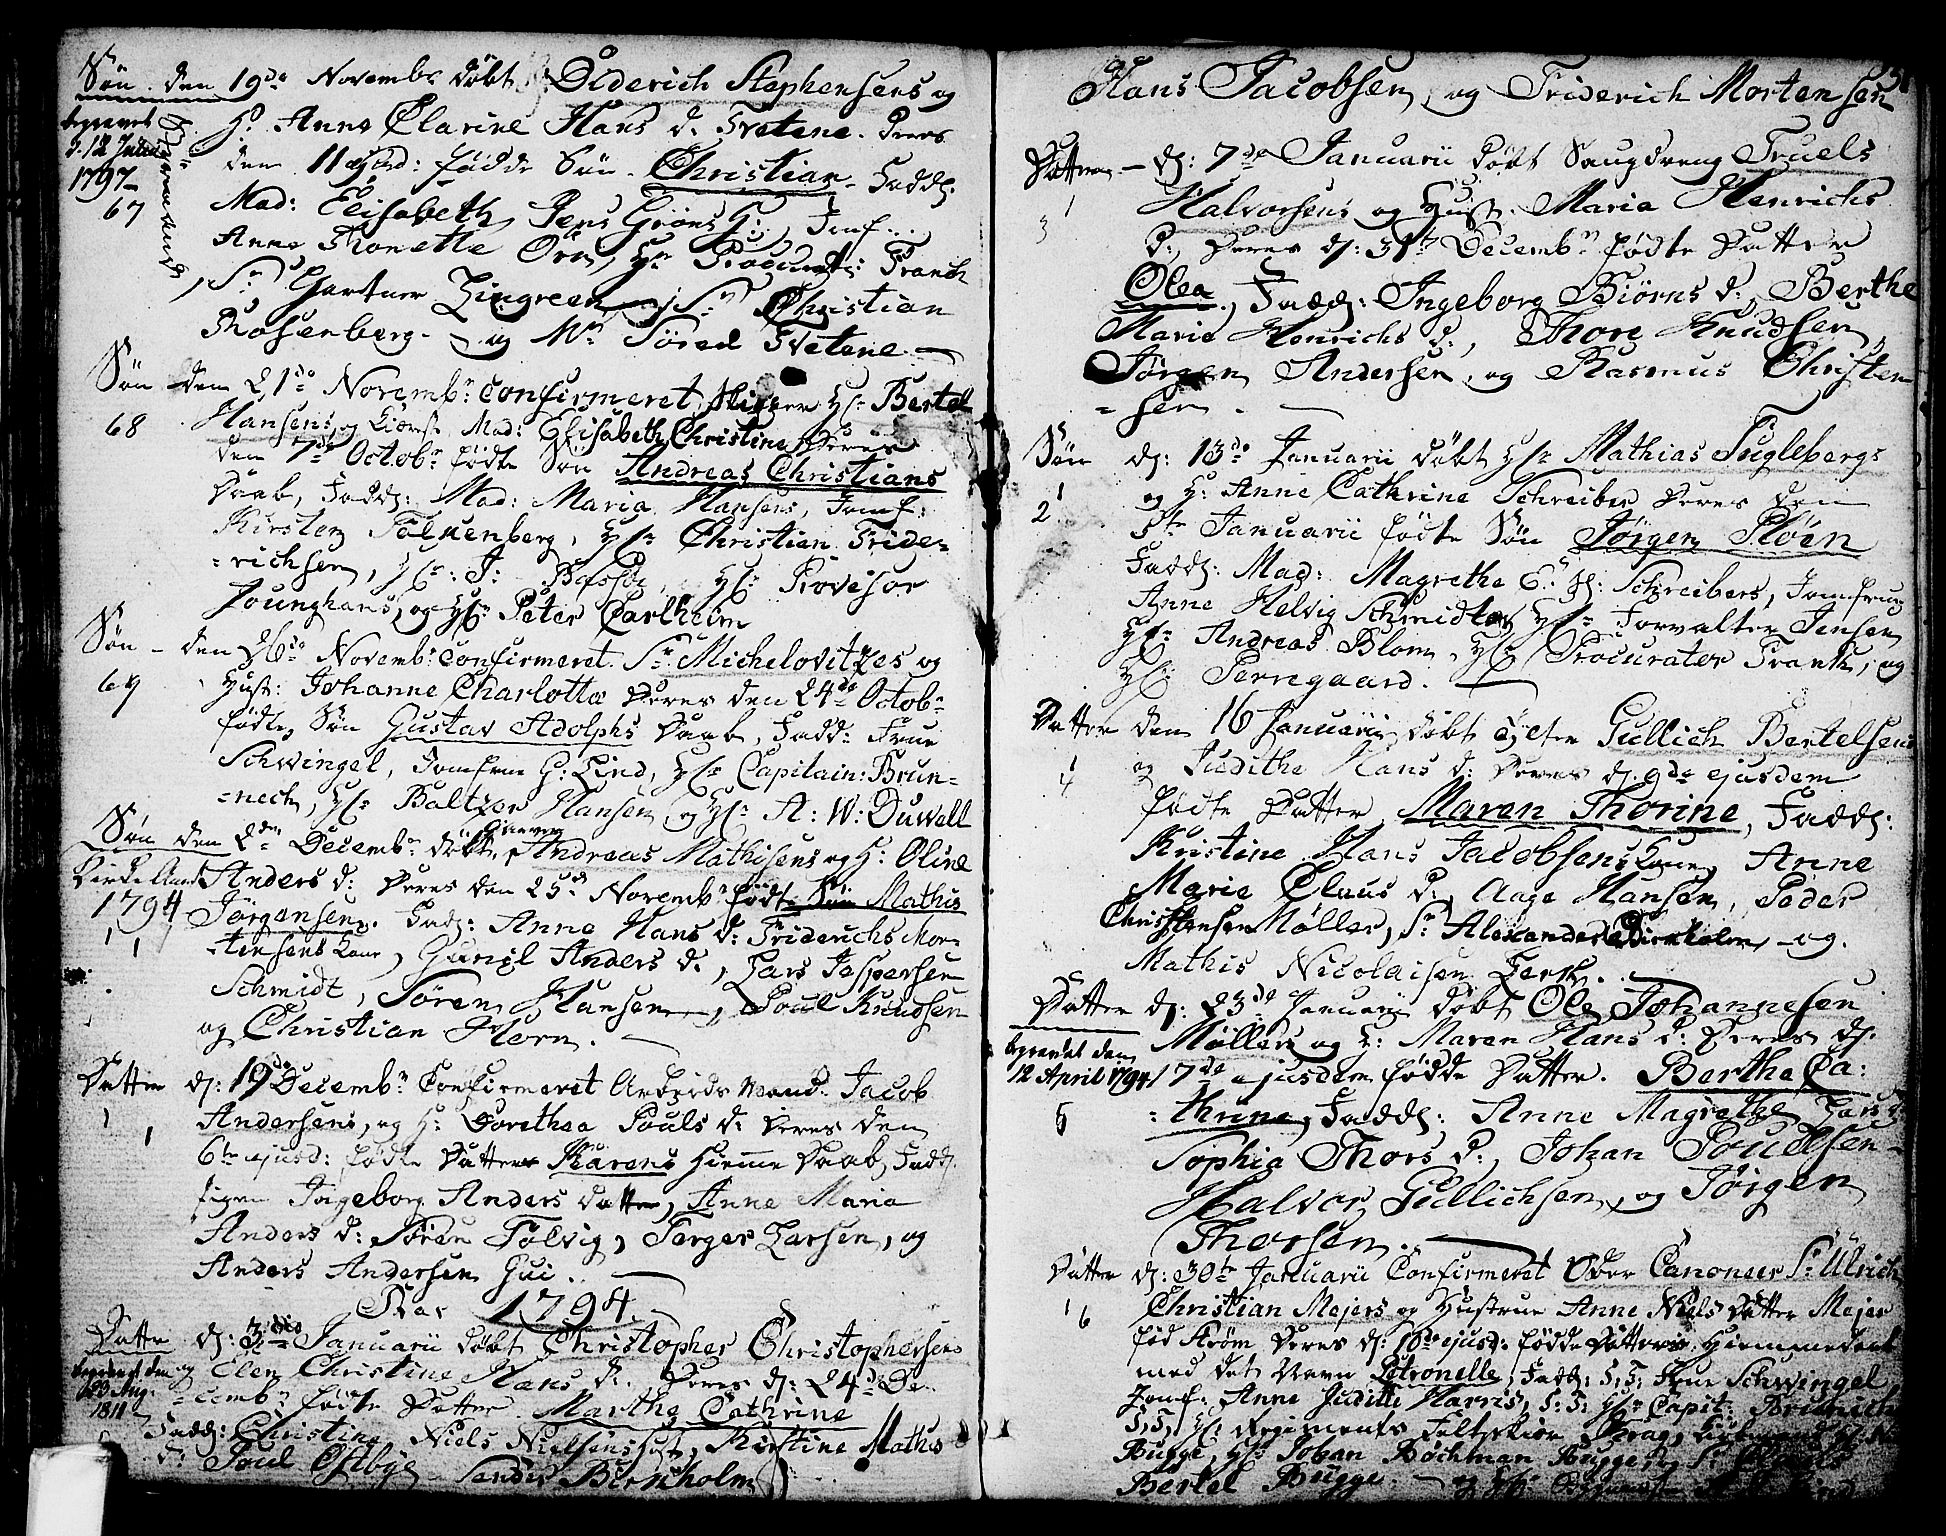 Søn den 19de Novembr døbt Diderich Stephensens og
begravet H: Anne Clarine Hans d: Tvetene. Deres
d. 12 Julii den 11 ejusd: fødde Søn Christian, Fadd:
1797
67 Mad: Elisabeth Jens Grøns H:, Jomf:
Anne Tronette Orn, Hr Procurator Franck
Sr Gartner Lingreen, Sr Christian
Rosenberg og Mr Søred Tvetene.
Søn den 21de Novembr confirmeret Skipper Hr Bertel
68 Hansens og Kiærest Mad: Elisabeth Christine Deres
den 7de Octobr fødte Søn Andreas Christians
Daab, Fadd: Mad: Maria Hansens, Jomf:
Kirsten Falkenberg, Hr Christian Fride-
=richsen, Hr: J: Basse, Hr Provisor
Jounghans, og Hr Peter Carlheim
Søn den 26de Novembr Confirmeret Sr Michelovitzes og
69 Hust: Johanne Charlotta Deres den 24de Octobr
fødte Søn Gustav Adolphs Daab, Fadd: Frue
Schwingel, Jomfrue G: Lind, Hr Capitain: Brun-
=nech, Hr Baltzer Hansen og Hr A: W: Duwell
Søn den 2den Decembr døbt Andreas Mathisens og H: Oline
Kirke Aaret Anders d: Deres den 25de Novembr fødte Søn Mathis
1794 Jørgensen. Fadd: Anne Hans d: Friderichs Mor-
1 1 =tensens Kone, Gunil Anders d:, Lars Jespersen
Schmidt, Søren Hansen, Poul Knudsen
og Christian Horn.
Datter d: 19de Decembr Confirmeret Arbeids Mand: Jacob
1 1 Andersens, og H: Dorethea Pouls d: Deres den
6te ejusd: fødte Datter Karens Hieme Daab, Fadd:
Ingeborg Anders Datter, Anne Maria
Anders d: Søren Tølvig, Terger Larsen, og
Anders Andersen Gui.
Aar 1794.
Datter d: 3die Januarii døbt Christopher Christophersens
begravet den og Elen Christine Hans d: Deres d: 24de De-
23 Aug. =cembr fødte Datter Marthe Cathrine
1811 Fadd: Christine Niels Nielsens Hust, Kirstine Mathis
d: Poul Østbye Sander Birkholm
Hans Jacobsen, og Friderich Mortensen
Datter d: 7de Januarii døbt Saugdreng Truels
1 3 Halvorsens og Hust. Maria Henrichs
D:, Deres d: 31te Decembr fødte Datter
Olea, Fadd: Ingeborg Biørns d:, Berthe
Marie Henrichs d:, Thore Knudsen,
Jørgen Andersen, og Rasmus Christen
=sen.
Søn d: 13de Januarii døbt Hr Mathias Fuglebergs
1 2 og H: Anne Cathrine Schreiber Deres den
5te Januarii fødte Søn Jørgen Pløen
Fadd: Mad: Magrethe E: Schreibers, Jomfrue
Anne Helvig Schmidt, Hr Forvalter Jensen
Hr Andreas Blom, Hr Procurator Frank, og
Hr Perregaard.
Datter den 16 Januarii døbt Gullich Bertelsens
1 4 og Judithe Hans d: Deres d: 9de ejusdem
fødte Datter Maren Thorine, Fadd:
Kirstine Hans Jacobsens Kone, Anne
Marie Claus D:, Aage Hansen, Peder
Christensen Møller, Sr Alexander Birkholm, og
Mathis Nicolaisen Lerk.
Datter d: 23de Januarii døbt Ole Johannesen
begravet den Møllers og H: Maren Hans d: Deres d:
12 April 1794 17de ejusdem fødde Datter. Berthe Ca:
5 =thrine, Fadd: Anne Magrethe Lars d:
Sophia Thors D:, Johan Poulsen
Halvor Gullichsen, og Jørgen
Thorsen.
Datter d: 30te Januarii Confirmeret Ober Canoneer Sr Ulrich
1 6 Christian Mejers og Hustrue Anne Niels Datter Mejer
fød Strøm Deres d: 10de ejusd: fødde Datters Hiemmedaab
med det Navn Petronelle, Fadd: S: T: Frue Schwingel
Jomf: Anne Judith Harris, S: T: Hr Capit: Brunech
S: T: Hr Regiments Feltskier Krag,
Bugge, Hr Johan Bøchman Bugge, og Sr
Bertel Bugge.